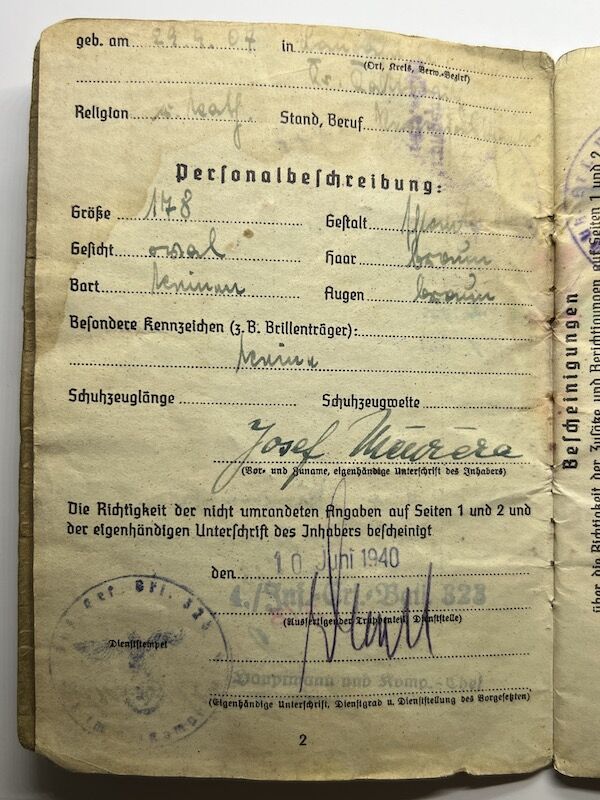 geb. am 29 4 07 in
(Ort, Kreis, Verw.-Bezirk)
Religion kath. Stand, Beruf
Personalbeschreibung:
Größe 178 Gestalt
Gesicht oval Haar braun
Bart keinen Augen braun
Besondere Kennzeichen (z. B. Brillenträger):
keine
Schuhzeuglänge Schuhzeugweite
Josef
(Vor- und Zuname, eigenhändige Unterschrift des Inhabers)
Die Richtigkeit der nicht umrandeten Angaben auf Seiten 1 und 2 und
der eigenhändigen Unterschrift des Inhabers bescheinigt
den 10 Juni 1940
4./Inf.-Ers.-Batl. 323
(Ausfertigender Truppenteil, Dienststelle)
Dienststempel
Hauptmann und Komp.-Chef
(Eigenhändige Unterschrift, Dienstgrad u. Dienststellung des Vorgesetzten)
2
Bescheinigungen
über die Richtigkeit der Zusätze und Berichtigungen auf Seiten 1 und 2